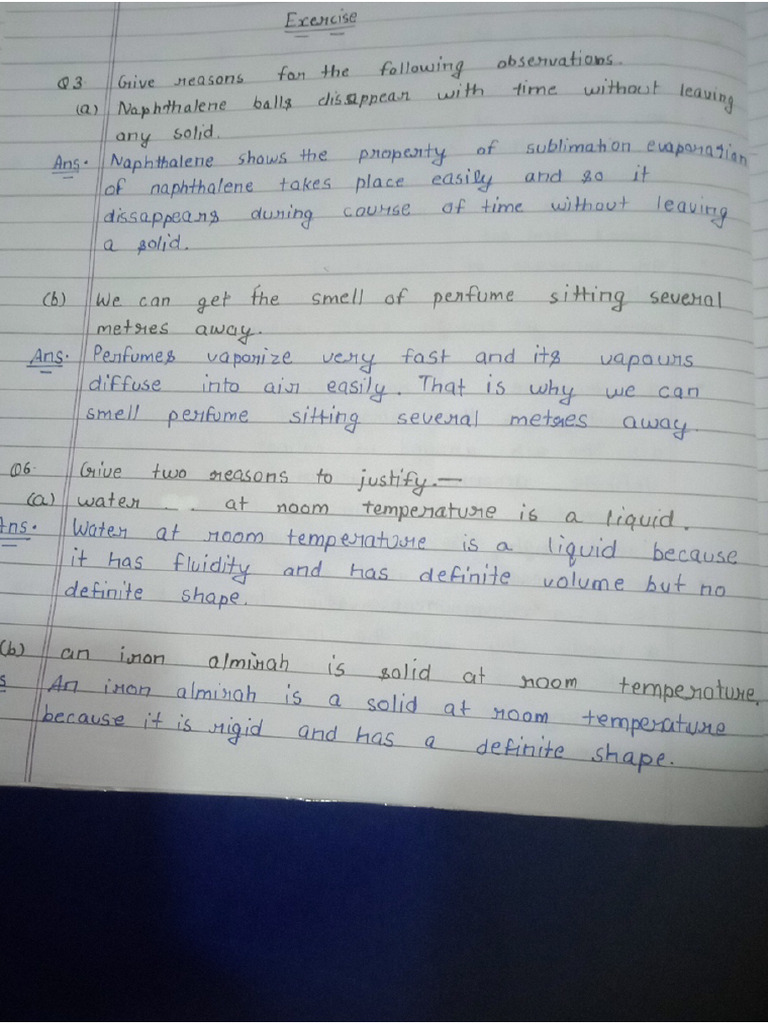 Exercise
Q3 Give reasons for the following observations.
(a) Naphthalene balls disappear with time without leaving
any solid.
Ans. Naphthalene shows the property of sublimation evaporation
of naphthalene takes place easily and so it
dissappears during course of time without leaving
a solid.
(b) We can get the smell of perfume sitting several
metres away.
Ans. Perfumes vaporize very fast and its vapours
diffuse into air easily. That is why we can
smell perfume sitting several metres away.
Q6. Give two reasons to justify.—
(a) water at room temperature is a liquid.
Ans. Water at room temperature is a liquid because
it has fluidity and has definite volume but no
definite shape.
(b) an iron almirah is solid at room temperature.
s An iron almirah is a solid at room temperature
because it is rigid and has a definite shape.